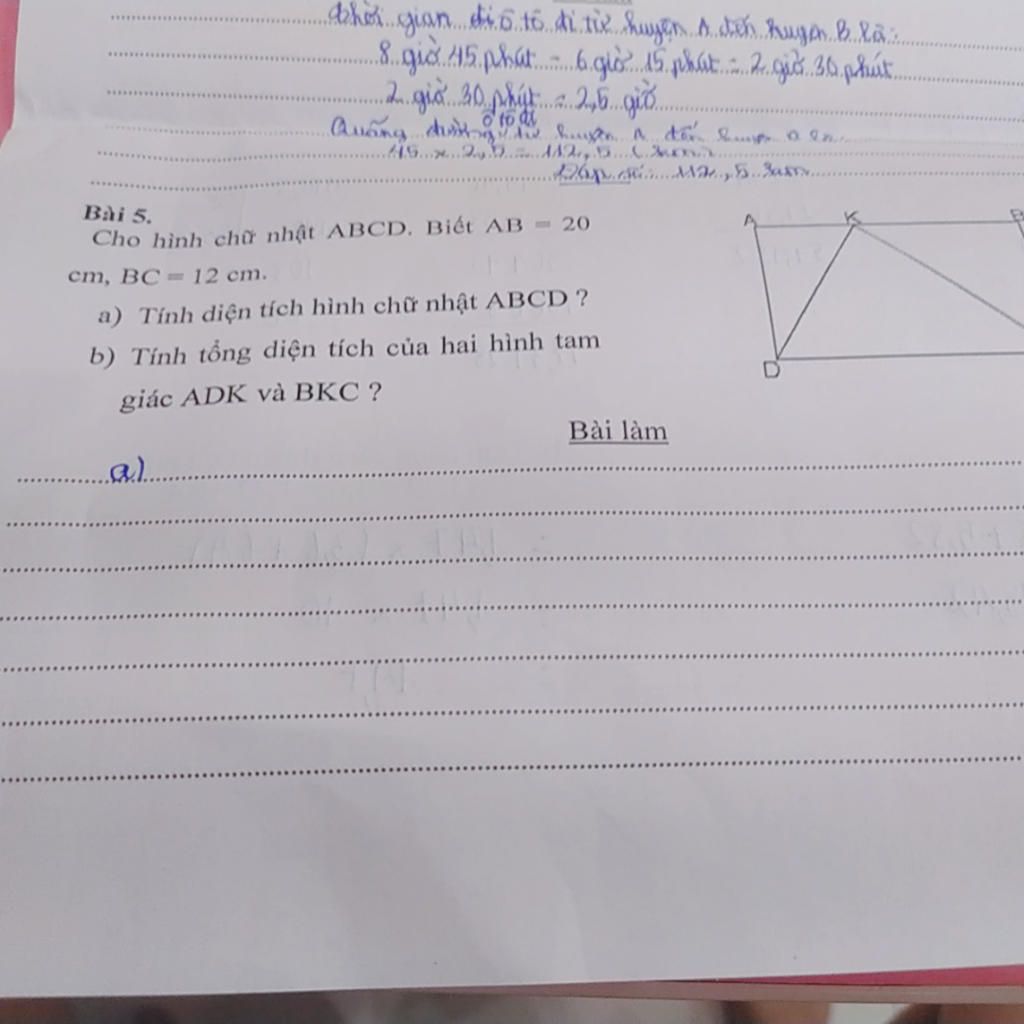 thời gian đi ô tô đi từ huyện A đến huyện B là:
8 giờ 45 phút - 6 giờ 15 phút = 2 giờ 30 phút
2 giờ 30 phút = 2,5 giờ
ô tô đi
Quãng đường từ huyện A đến
45 x 2,5 = 112,5 (km)
Đáp số: 112,5 km
Bài 5.
Cho hình chữ nhật ABCD. Biết AB = 20
cm, BC = 12 cm.
a) Tính diện tích hình chữ nhật ABCD ?
b) Tính tổng diện tích của hai hình tam
giác ADK và BKC ?
A K B
D
Bài làm
a)